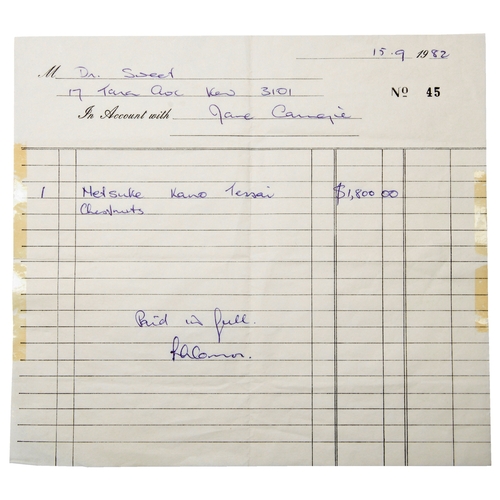 15.9 1982
M Dr. Sweet
17 Tara Ave Kew 3101
Nº 45
In Account with Jane Carnegie
1 Netsuke Kano Tessai $1,800 00
Chestnuts
Paid in full.